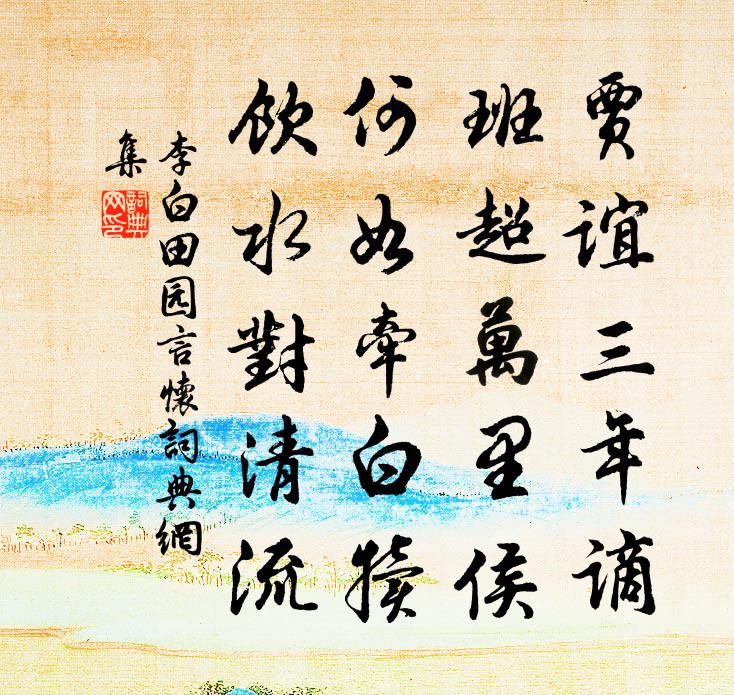 賈誼三年謫
班超萬里侯
何如牽白犢
飲水對清流
李白田园言懷詞典網
集
詞典网印